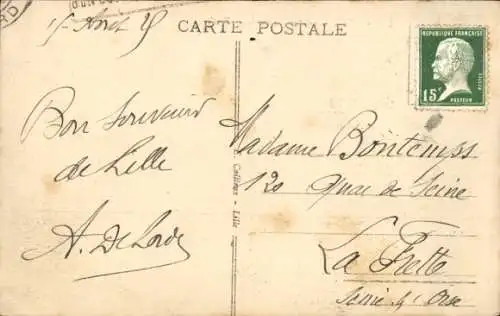 CARTE POSTALE
15 Août 25
Bon Souvenir
de Lille
A. DeLorde
Lille
Madame Bontemps
120 Quai de Seine
La Frette
Seine & Oise
REPUBLIQUE FRANÇAISE
POSTES
15c
PASTEUR